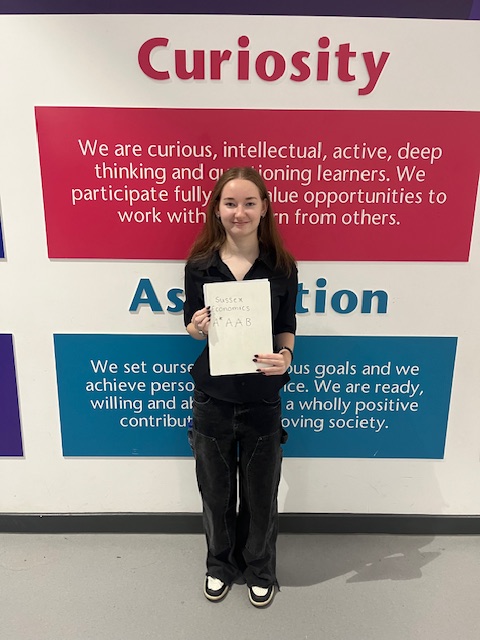 Curiosity
We are curious, intellectual, active, deep
thinking and questioning learners. We
participate fully value opportunities to
work with learn from others.
Aspiration
We set ourselves goals and we
achieve personal We are ready,
willing and able a wholly positive
contribution society.
Sussex
Economics
A* A A B